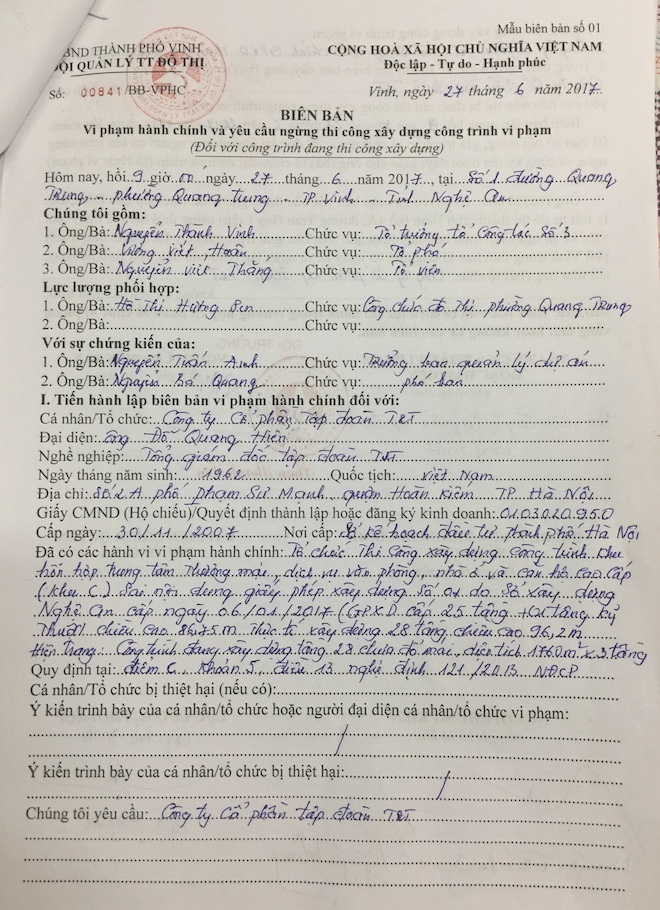 Mẫu biên bản số 01
UBND THÀNH PHỐ VINH
ĐỘI QUẢN LÝ TT ĐÔ THỊ
CỘNG HOÀ XÃ HỘI CHỦ NGHĨA VIỆT NAM
Độc lập - Tự do - Hạnh phúc
Số: 00841/BB-VPHC
Vinh, ngày 27 tháng 6 năm 2017.
BIÊN BẢN
Vi phạm hành chính và yêu cầu ngừng thi công xây dựng công trình vi phạm
(Đối với công trình đang thi công xây dựng)
Hôm nay, hồi 9 giờ 00 ngày 27 tháng 6 năm 2017, tại Số 1 đường Quang
Trung phường Quang trung TP Vinh Tỉnh Nghệ An
Chúng tôi gồm:
1. Ông/Bà: Nguyễn Thành Vinh Chức vụ: Tổ trưởng tổ Công tác Số 3
2. Ông/Bà: Vương Việt Hoàn Chức vụ: Tổ phó
3. Ông/Bà: Nguyễn Việt Thắng Chức vụ: Tổ viên
Lực lượng phối hợp:
1. Ông/Bà: Hồ Thị Hương Sen Chức vụ: Công chức đô thị phường Quang Trung
2. Ông/Bà: Chức vụ:
Với sự chứng kiến của:
1. Ông/Bà: Nguyễn Tuấn Anh Chức vụ: Trưởng ban quản lý dự án
2. Ông/Bà: Nguyễn Bá Quang Chức vụ: phó ban
I. Tiến hành lập biên bản vi phạm hành chính đối với:
Cá nhân/Tổ chức: Công ty Cổ phần Tập đoàn T&T
Đại diện: ông Đỗ Quang Hiển
Nghề nghiệp: Tổng giám đốc tập đoàn T&T
Ngày tháng năm sinh: 1962 Quốc tịch: Việt Nam
Địa chỉ: Số 2A phố Phạm Sư Mạnh quận Hoàn Kiếm TP Hà Nội
Giấy CMND (Hộ chiếu)/Quyết định thành lập hoặc đăng ký kinh doanh: 0103020950
Cấp ngày: 30/11/2007 Nơi cấp: Sở kế hoạch đầu tư thành phố Hà Nội
Đã có các hành vi vi phạm hành chính: Tổ chức Thi Công xây dựng Công trình Khu
hỗn hợp trung tâm Thương mại, dịch vụ văn phòng, nhà ở và căn hộ Cao Cấp
(Khu C) Sai nội dung giấy phép xây dựng Số 01 do Sở xây dựng
Nghệ An Cấp ngày 06/01/2017 (GPXD Cấp 25 tầng + 01 tầng Kỹ
Thuật chiều cao 86,75m Thực tế xây dựng 28 tầng chiều cao 96,2m
Hiện Trạng: Công trình đang xây dựng tầng 28 chưa đổ mái, diện tích 1760m² x 3 tầng
Quy định tại: điểm C, Khoản 5, điều 13 nghị định 121/2013 NĐCP
Cá nhân/Tổ chức bị thiệt hại (nếu có):
Ý kiến trình bày của cá nhân/tổ chức hoặc người đại diện cá nhân/tổ chức vi phạm:
/
Ý kiến trình bày của cá nhân/tổ chức bị thiệt hại:
/
Chúng tôi yêu cầu: Công ty Cổ phần tập đoàn T&T